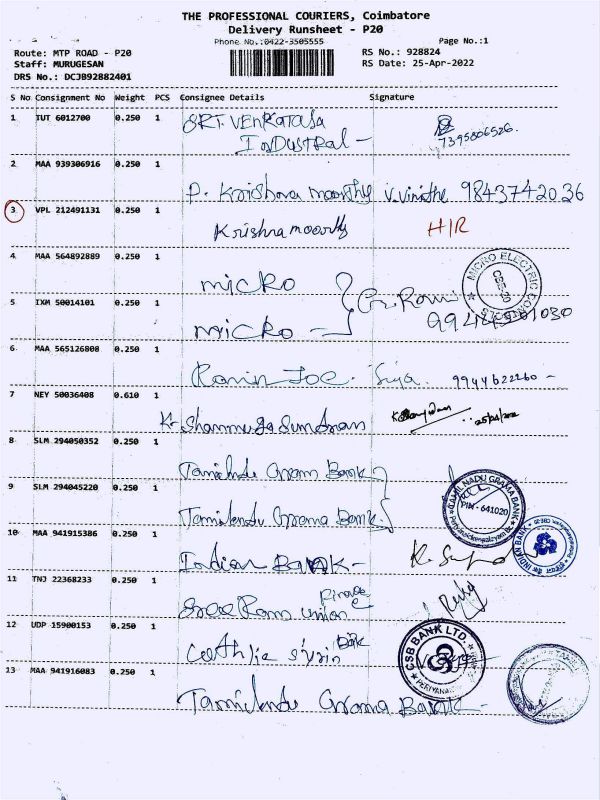 THE PROFESSIONAL COURIERS, Coimbatore
Delivery Runsheet - P20
Phone No.:0422-3505555
Page No.:1
Route: MTP ROAD - P20
RS No.: 928824
Staff: MURUGESAN
RS Date: 25-Apr-2022
DRS No.: DCJB92882401
S No Consignment No Weight PCS Consignee Details Signature
1 TUT 6012700 0.250 1 SRI. VENKATASA
INDUSTRAL -
7395806526.
2 MAA 939306916 0.250 1
P. Krishna moorthy V. Vinothe 9843742036
3 VPL 212491131 0.250 1
Krishna moorthy H/R
4 MAA 564892889 0.250 1
micro
MICRO ELECTRIC
5 IXM 50014101 0.250 1
micro -
6 MAA 565126808 0.250 1
Joe. 9944622260 -
7 NEY 50036408 0.610 1
K. Shanmuga Sundaram
8 SLM 294050352 0.250 1
Tamilndu Gram Bank
9 SLM 294045220 0.250 1
Tamilandu Grama Bank
TAMIL NADU GRAMA BANK
PIN - 641020
10 MAA 941915386 0.250 1
Indian BANK -
INDIAN BANK
11 TNJ 22368233 0.250 1
Sree Ram union
12 UDP 15900153 0.250 1
cathlic syrin Bank
CSB BANK LTD.
13 MAA 941916083 0.250 1
Tamilandu Grama Bank -